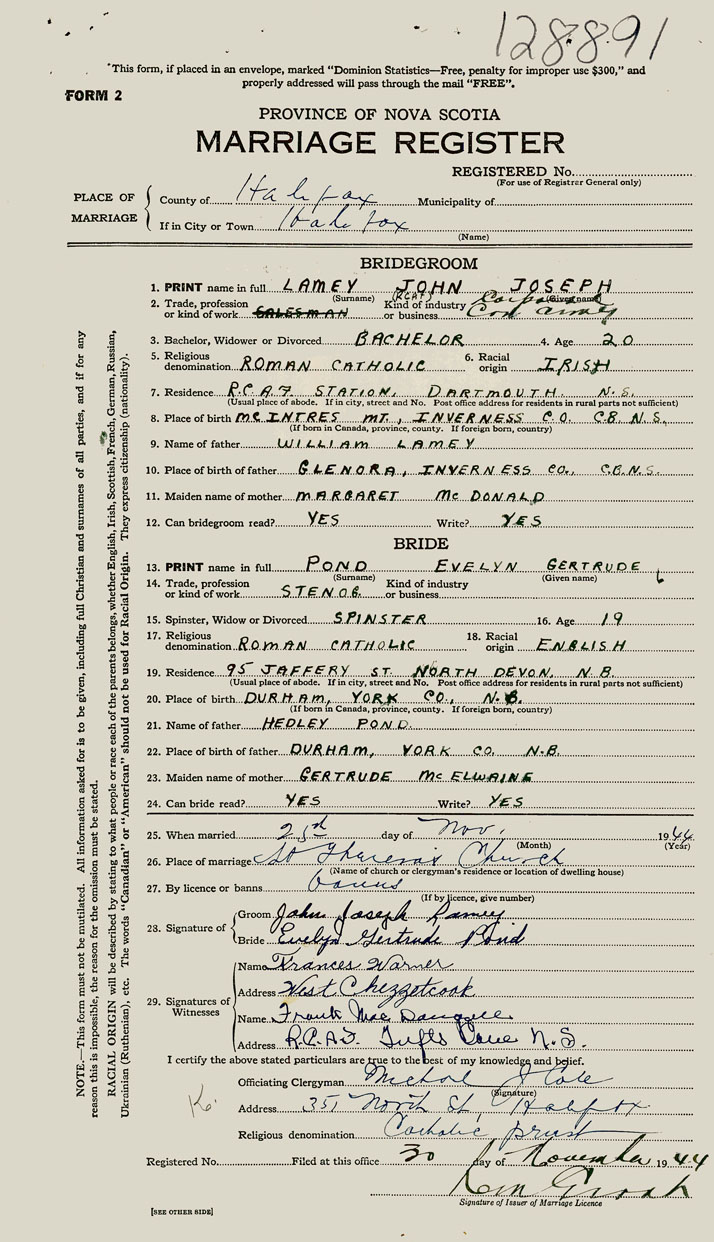 128891
*This form, if placed in an envelope, marked “Dominion Statistics—Free, penalty for improper use $300,” and
properly addressed will pass through the mail “FREE”.
FORM 2
PROVINCE OF NOVA SCOTIA
MARRIAGE REGISTER
REGISTERED No.
(For use of Registrar General only)
PLACE OF MARRIAGE
County of Halifax Municipality of
If in City or Town Halifax
(Name)
BRIDEGROOM
1. PRINT name in full LAMEY JOHN JOSEPH
(Surname) (Given name)
2. Trade, profession or kind of work SALESMAN Kind of industry or business (RCAF) Corporal
3. Bachelor, Widower or Divorced BACHELOR 4. Age 20
5. Religious denomination ROMAN CATHOLIC 6. Racial origin IRISH
7. Residence R.C.A.F. STATION, DARTMOUTH N.S.
(Usual place of abode. If in city, street and No. Post office address for residents in rural parts not sufficient)
8. Place of birth MC INTRES MT, INVERNESS C.O. C.B. N.S.
(If born in Canada, province, county. If foreign born, country)
9. Name of father WILLIAM LAMEY
10. Place of birth of father GLENORA, INVERNESS CO., C.B.N.S.
11. Maiden name of mother MARGARET Mc DONALD
12. Can bridegroom read? YES Write? YES
BRIDE
13. PRINT name in full POND EVELYN GERTRUDE
(Surname) (Given name)
14. Trade, profession or kind of work STENOG. Kind of industry or business
15. Spinster, Widow or Divorced SPINSTER 16. Age 19
17. Religious denomination ROMAN CATHOLIC 18. Racial origin ENGLISH
19. Residence 95 JAFFERY ST. NORTH DEVON, N.B
(Usual place of abode. If in city, street and No. Post office address for residents in rural parts not sufficient)
20. Place of birth DURHAM, YORK CO., N.B.
(If born in Canada, province, county. If foreign born, country)
21. Name of father HEDLEY POND.
22. Place of birth of father DURHAM, YORK CO, N.B.
23. Maiden name of mother GERTRUDE Mc ELWAINE
24. Can bride read? YES Write? YES
25. When married 23rd day of Nov. 1944
(Month) (Year)
26. Place of marriage St Theresa's Church
(Name of church or clergyman's residence or location of dwelling house)
27. By licence or banns banns
(If by licence, give number)
28. Signature of
Groom John Joseph Lamey
Bride Evelyn Gertrude Pond
29. Signatures of Witnesses
Name Frances Warner
Address West Chezzetcook
Name Frank Mac
Address R.C.A.F. Tufts Cove N.S.
I certify the above stated particulars are true to the best of my knowledge and belief.
Officiating Clergyman Michael J Cole
(Signature)
Address 351 North St, Halifax
Religious denomination Catholic priest
Registered No. Filed at this office 30 day of November 1944
Signature of Issuer of Marriage Licence
[SEE OTHER SIDE]
NOTE.—This form must not be mutilated. All information asked for is to be given, including full Christian and surnames of all parties, and if for any
reason this is impossible, the reason for the omission must be stated.
RACIAL ORIGIN will be described by stating to what people or race each of the parents belongs, whether English, Irish, Scottish, French, German, Russian,
Ukrainian (Ruthenian), etc. The words “Canadian” or “American” should not be used for Racial Origin. They express citizenship (nationality).